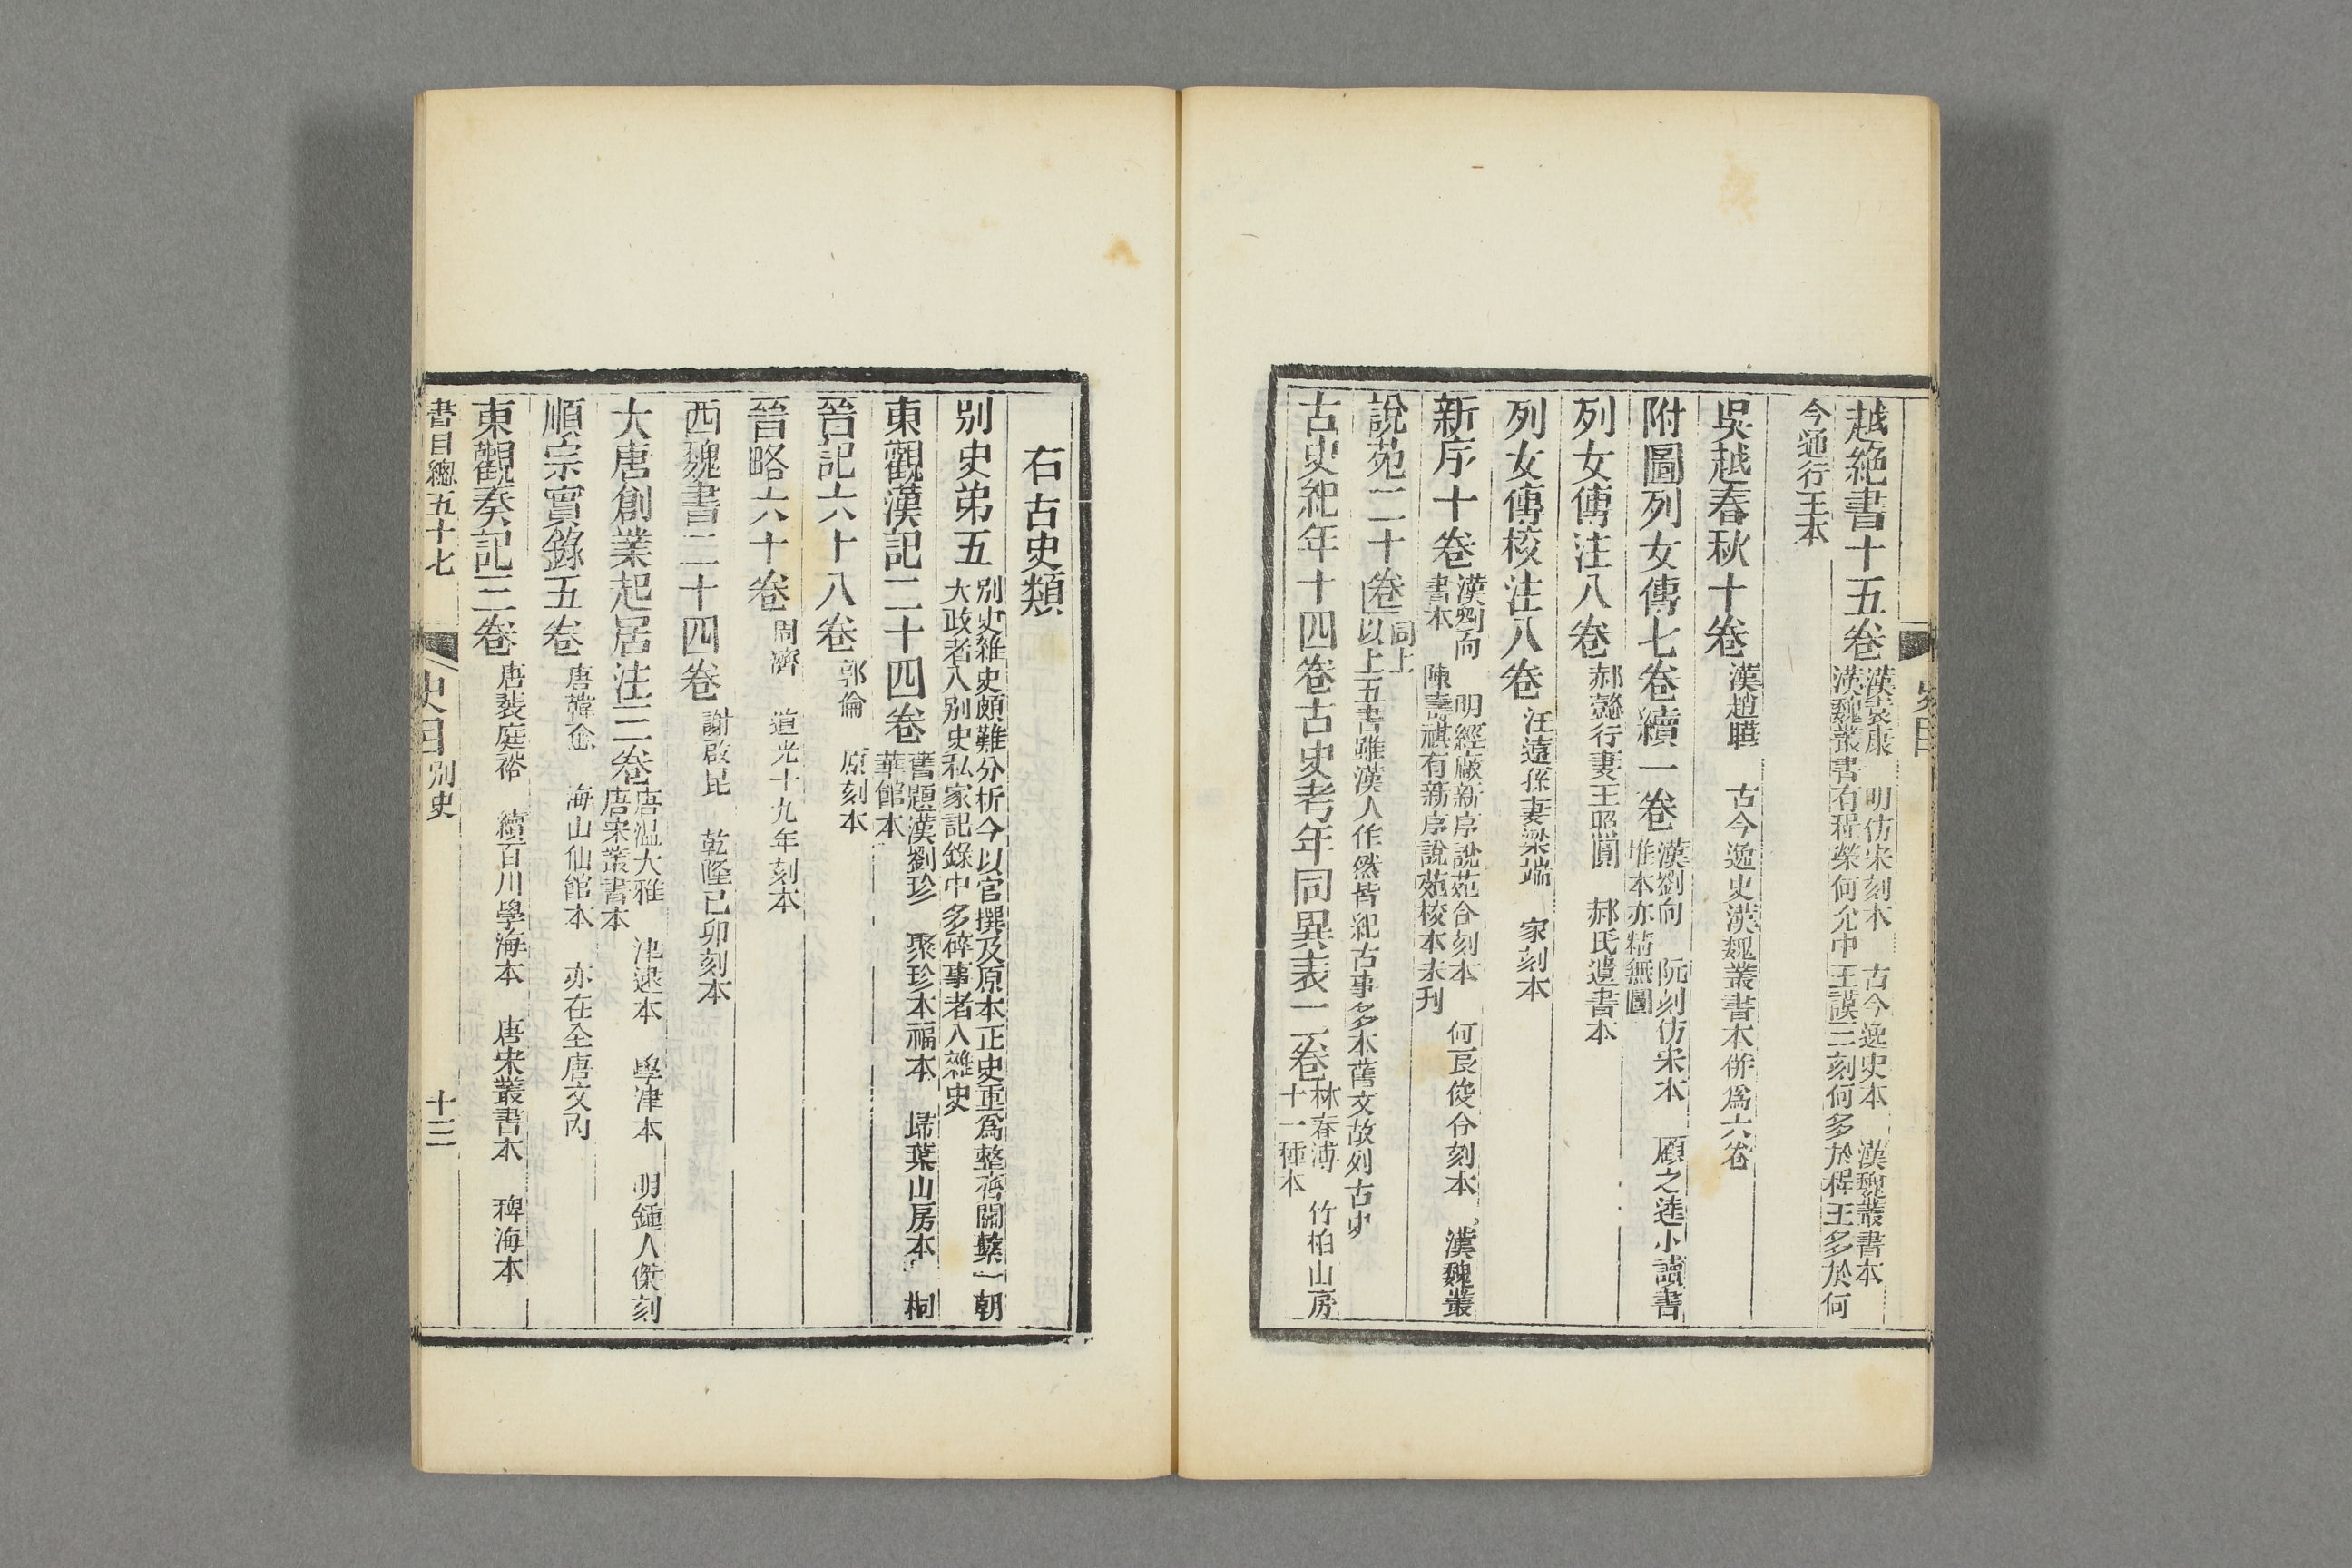 越絕書十五卷 漢袁康 明仿宋刻本 古今逸史本 漢魏叢書本
漢魏叢書有程榮何允中王謨三刻何多於程王多於何
今通行王本
吳越春秋十卷 漢趙曄 古今逸史漢魏叢書本併爲六卷
附圖列女傳七卷續一卷 漢劉向 阮刻仿宋本 顧之逵小讀書
堆本亦精無圖
列女傳注八卷 郝懿行妻王照圓 郝氏遺書本
列女傳校注八卷 汪遠孫妻梁端 家刻本
新序十卷 漢劉向 明經廠新序說苑合刻本 何良俊合刻本 漢魏叢
書本 陳壽祺有新序說苑校本未刊
說苑二十卷 同上
以上五書雖漢人作然皆紀古事多本舊文故列古史
古史紀年十四卷古史考年同異表二卷 林春溥 竹柏山房
十一種本
右古史類
別史弟五 別史雜史頗難分析今以官撰及原本正史重爲整齊關繫一朝
大政者入別史私家記錄中多碎事者入雜史
東觀漢記二十四卷 舊題漢劉珍 聚珍本福本 埽葉山房本 桐
華館本
晉記六十八卷 郭倫 原刻本
晉略六十卷 周濟 道光十九年刻本
西魏書二十四卷 謝啟昆 乾隆己卯刻本
大唐創業起居注三卷 唐溫大雅 津逮本 學津本 明鍾人傑刻
唐宋叢書本
順宗實錄五卷 唐韓愈 海山仙館本 亦在全唐文內
東觀奏記三卷 唐裴庭裕 續百川學海本 唐宋叢書本 稗海本
書目總五十七 史目 別史 十三